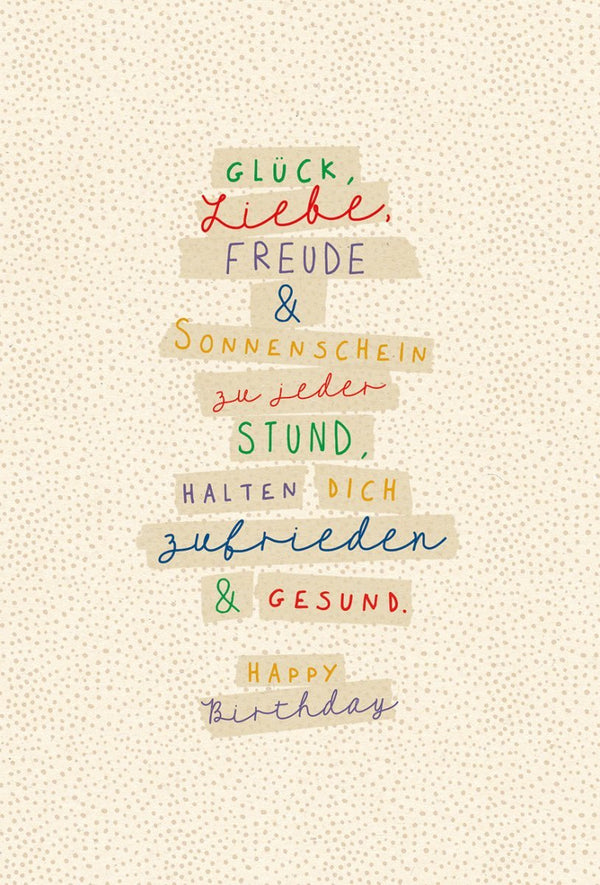 GLÜCK,
Liebe,
FREUDE
&
SONNENSCHEIN
zu jeder
STUND,
HALTEN DICH
zufrieden
& GESUND.
HAPPY
Birthday